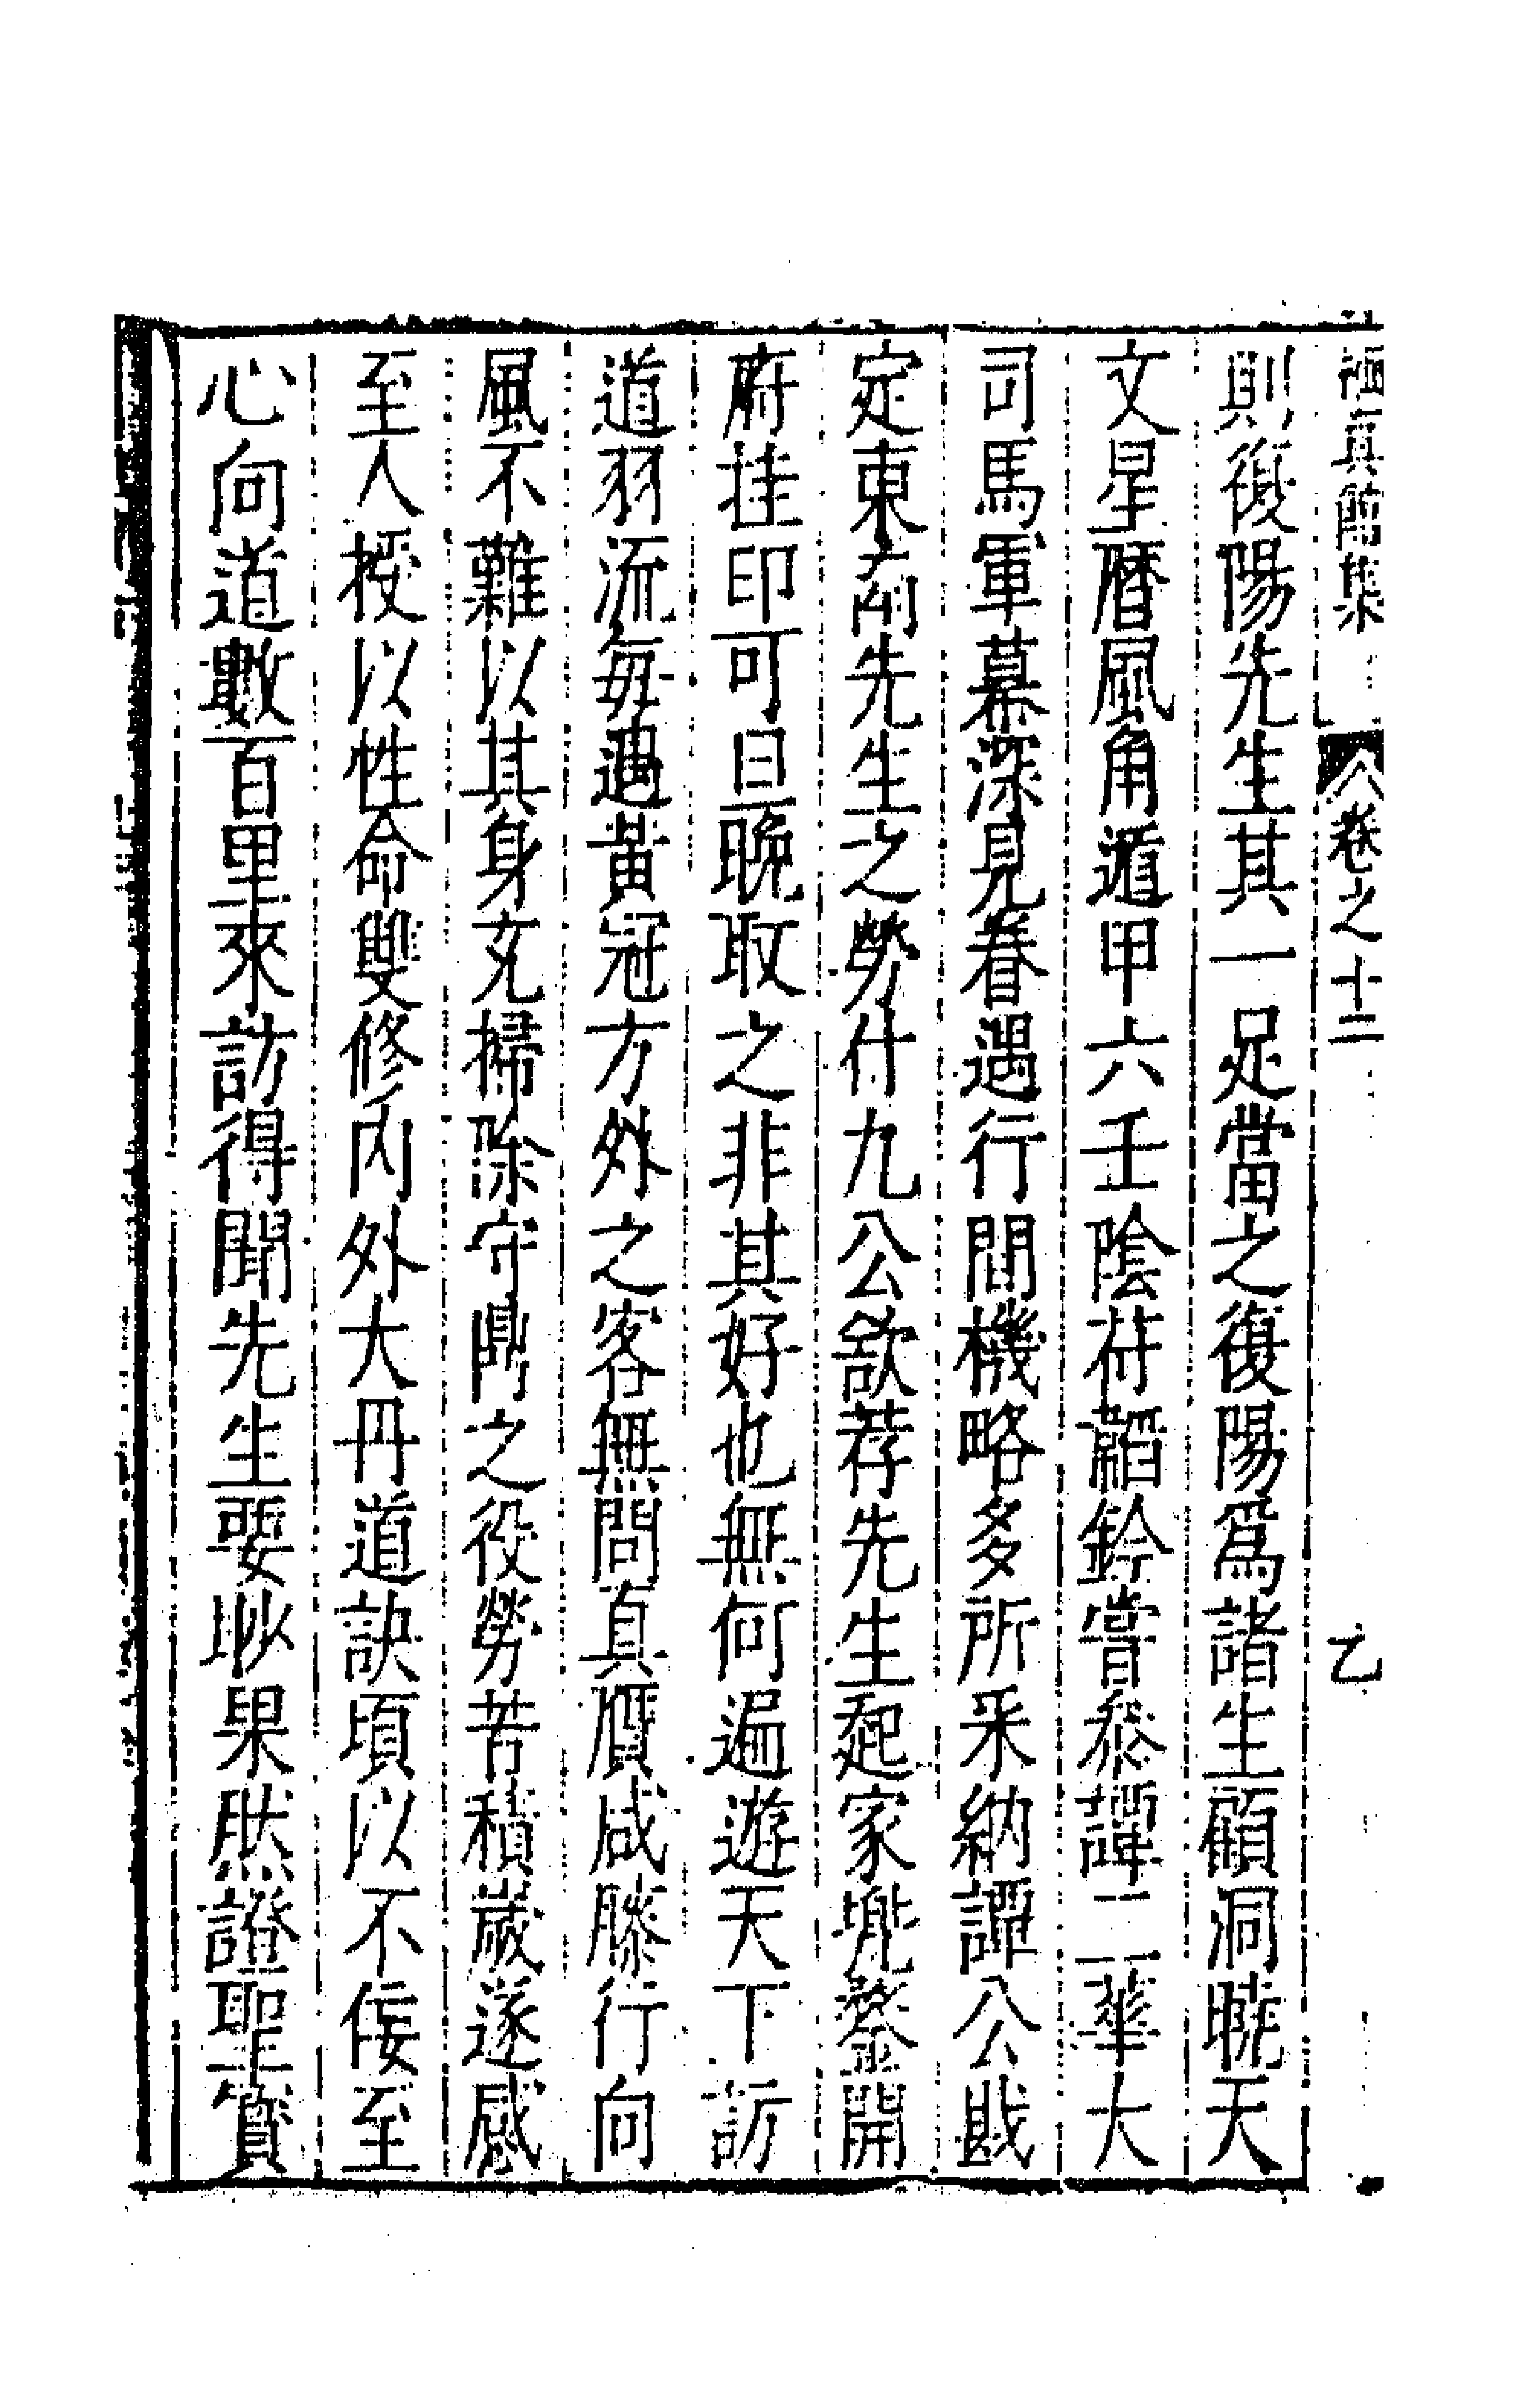 棲真館集 卷之十二 乙
則復陽先生其一足當之復陽爲諸生顧洞曉天
文星曆風角遁甲六壬陰符韜鈐嘗叅譚二華大
司馬軍幕深見眷遇行間機略多所采納譚公戡
定東南先生之勞什九公欲荐先生起家兜鍪開
府挂印可旦晚取之非其好也無何遍遊天下訪
道羽流每遇黃冠方外之客無問真贋咸膝行向
風不難以其身充掃除守鼎之役勞苦積歲遂感
至人授以性命雙修內外大丹道訣頃以不佞至
心向道數百里來訪得聞先生要眇果然證聖實